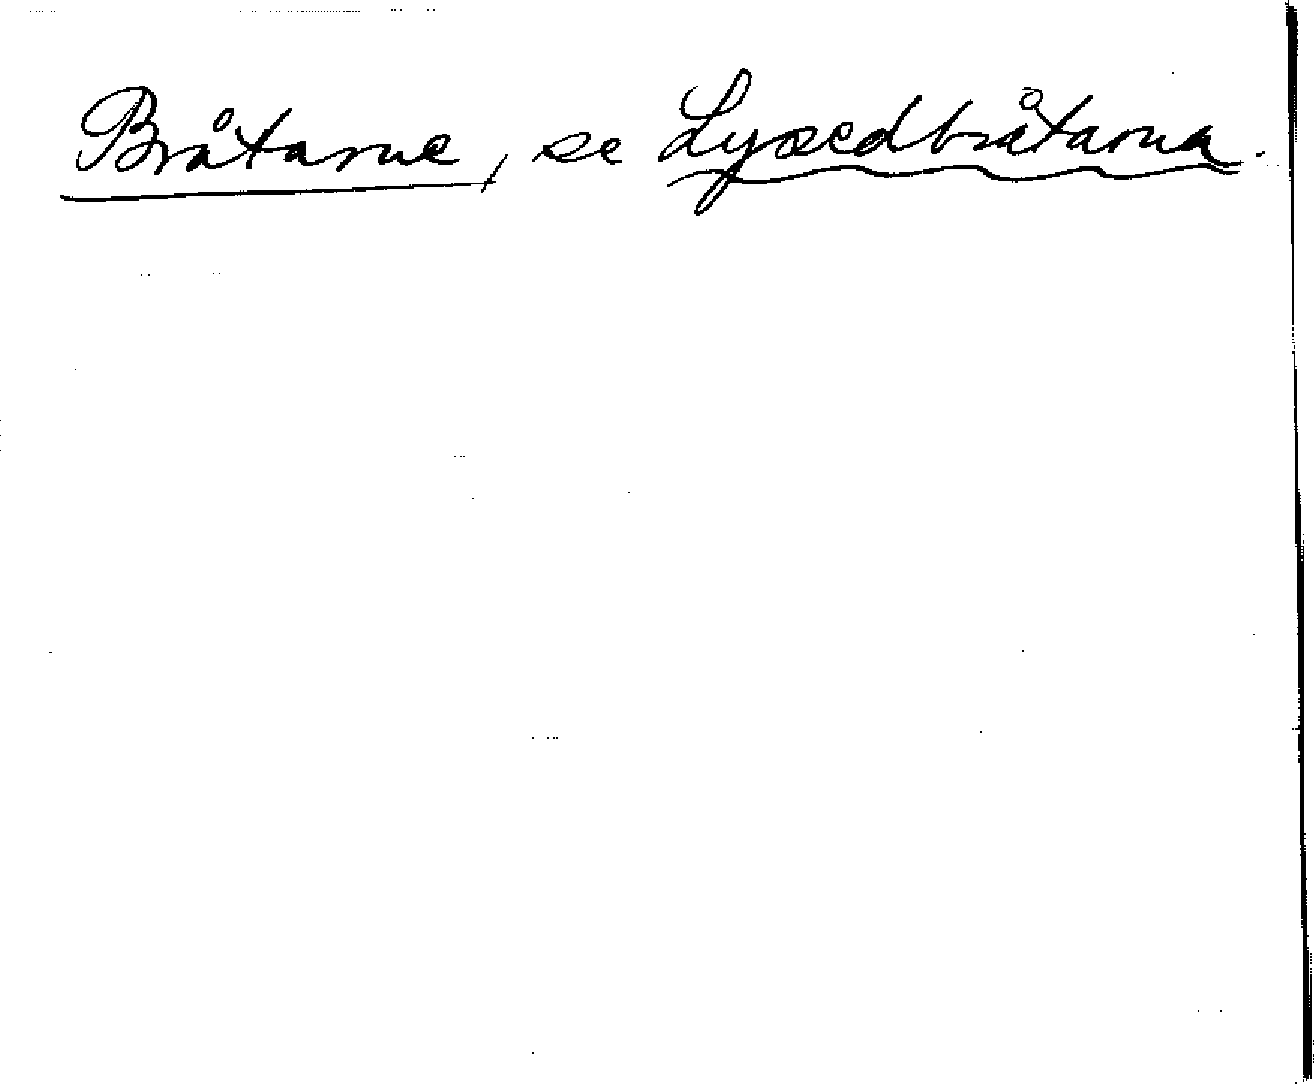 Bråtarne, se Lysedbråtarna.